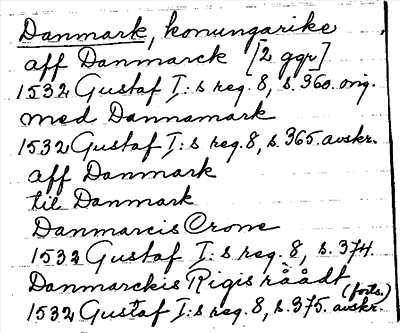 Danmark, konungarike
aff Danmarck [2 ggr]
1532 Gustaf I:s reg. 8, s. 360. orig.
med Dannamark
1532 Gustaf I:s reg. 8, s. 365. avskr.
aff Danmark
till Danmark
Danmarcis Crone
1532 Gustaf I:s reg. 8, s. 374
Danmarckis Rigis råådt
(forts.)
1532 Gustaf I:s reg. 8, s. 375. avskr.